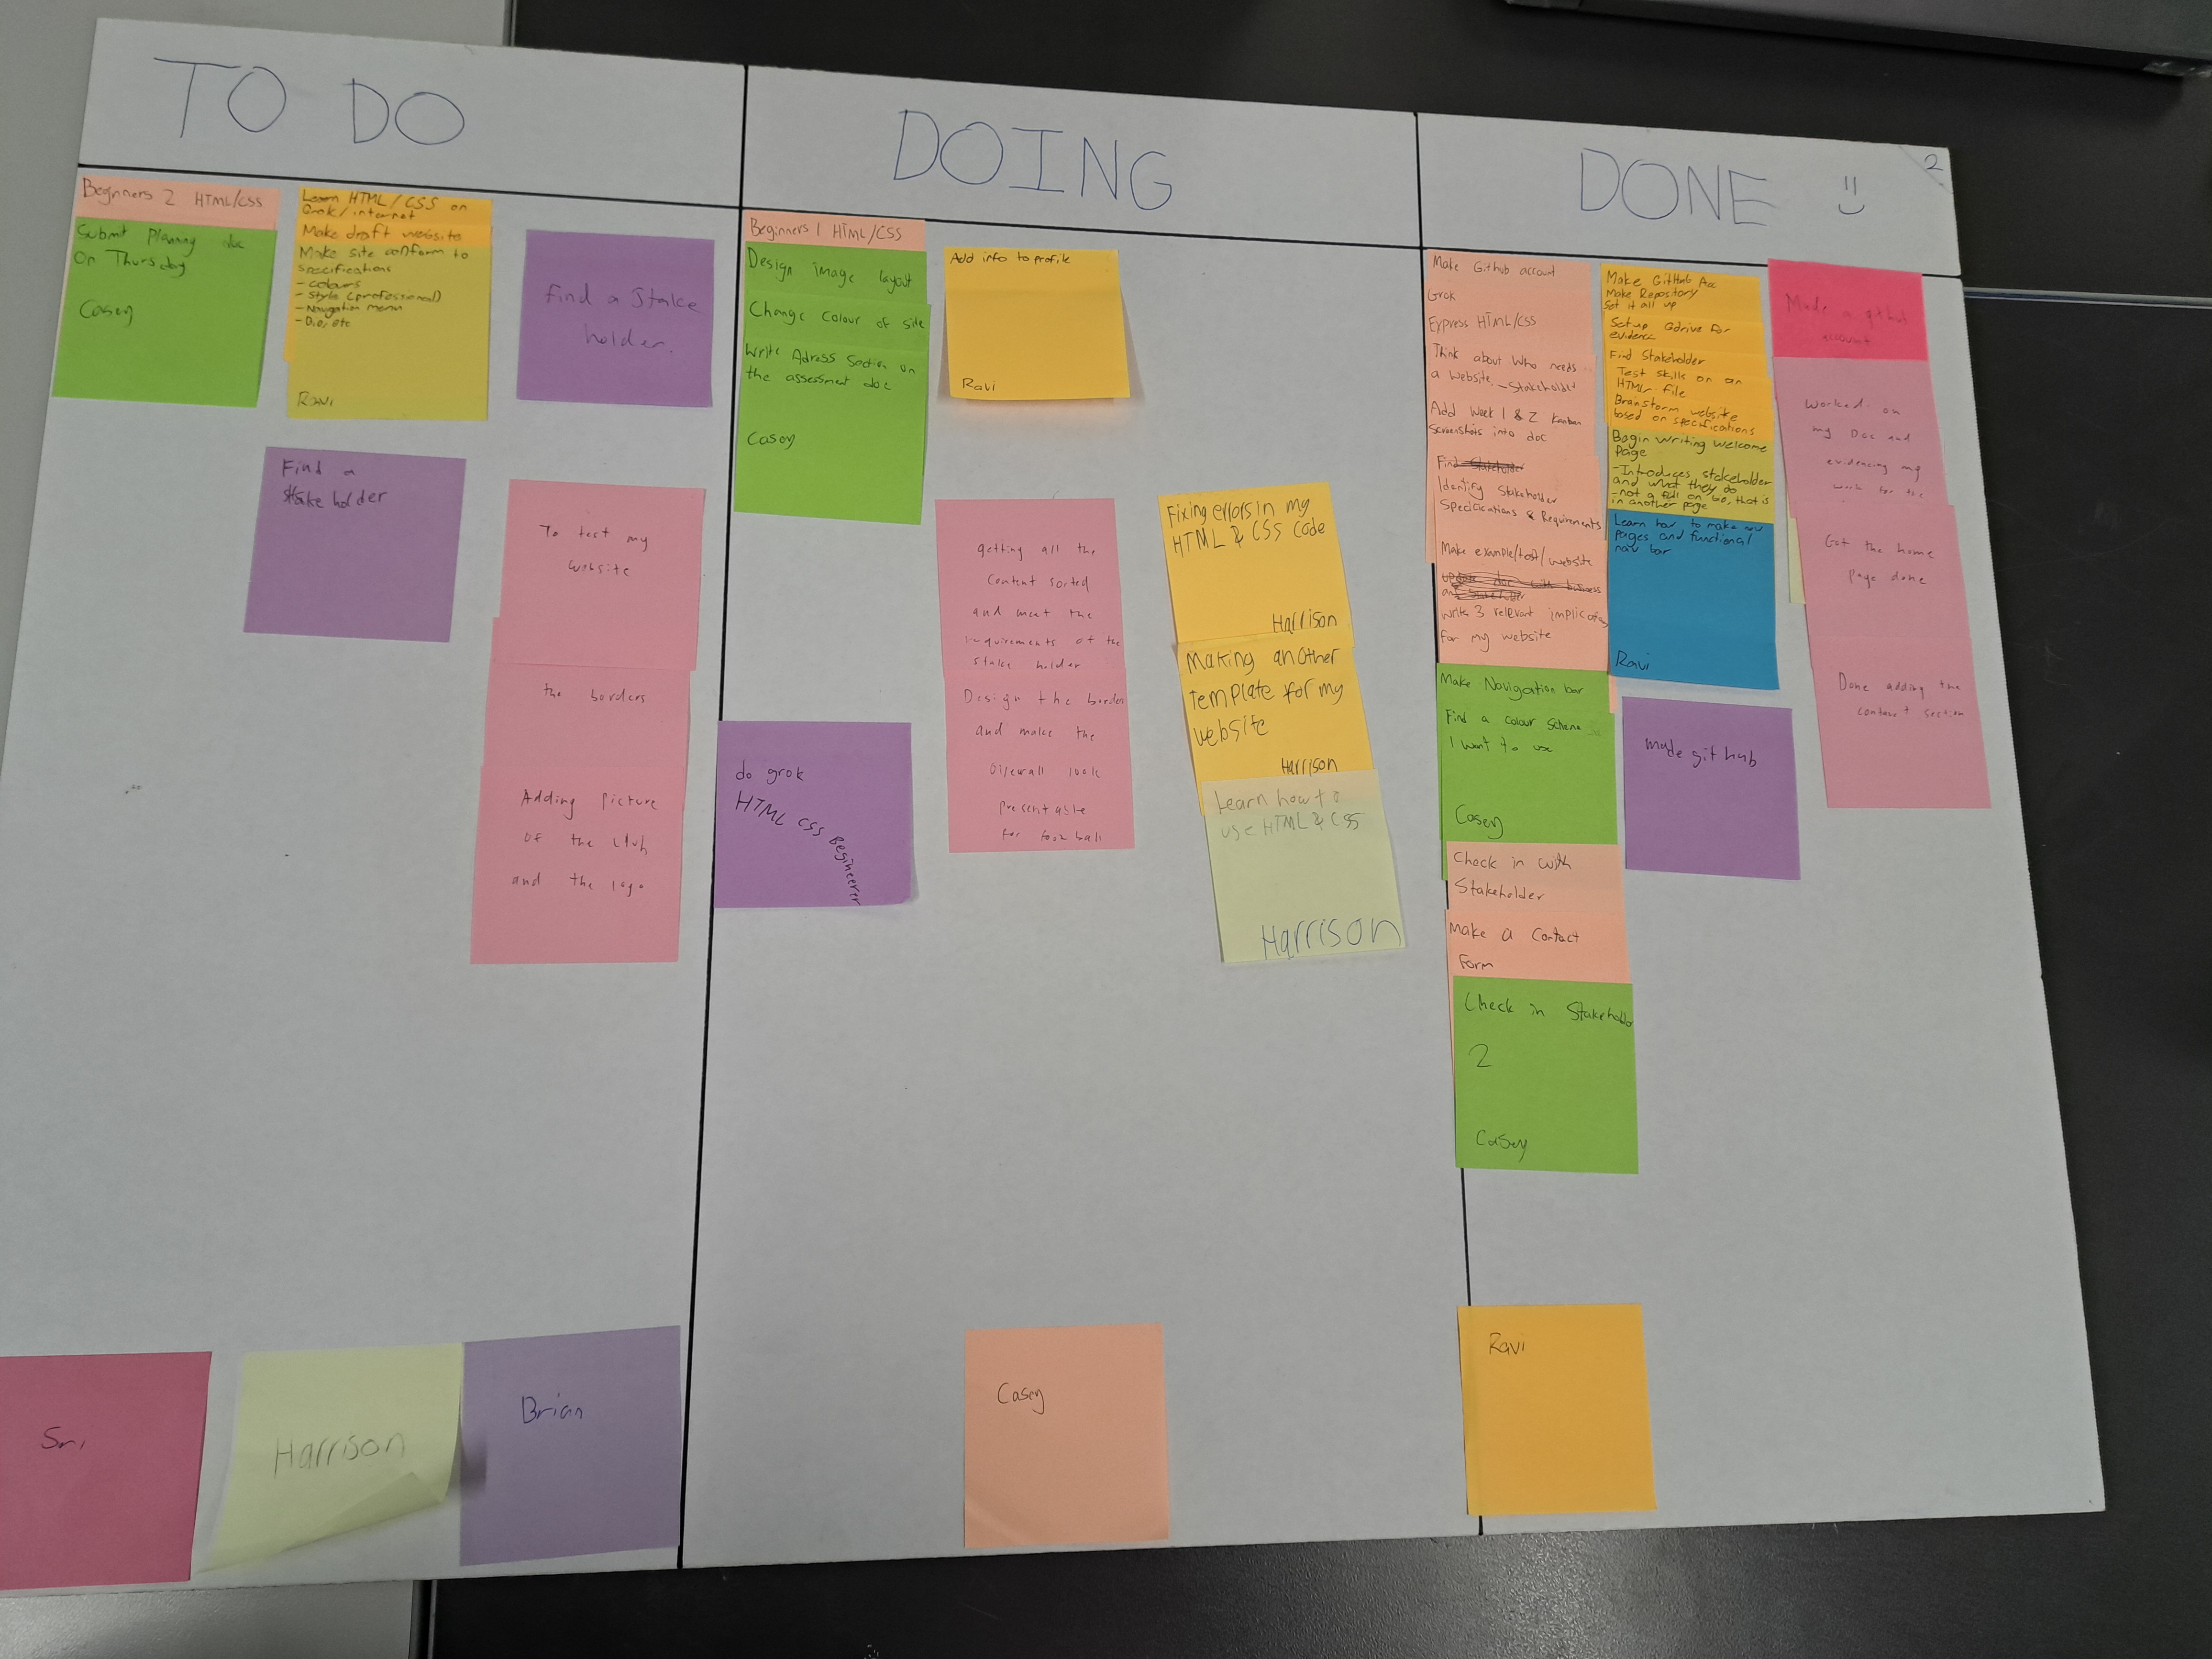 TO DO
Beginners 2 HTML/CSS
Submit planning doc
on Thursday
Casey
Learn HTML/CSS on
Grok/internet
Make draft website
Make site conform to
specifications
- colours
- style (professional)
- Navigation menu
- Bio, etc
Ravi
find a Stake
holder.
Find a
stake holder
To test my
website
the borders
Adding picture
of the club,
and the logo
Sri
Harrison
Brian
DOING
Beginners 1 HTML/CSS
Design image layout
Change colour of site
Write Adress Section on
the assessment doc
Casey
Add info to profile
Ravi
Fixing errors in my
HTML & CSS code
Harrison
Making another
Template for my
website
Harrison
Learn how to
use HTML & CSS
Harrison
getting all the
content sorted
and meet the
requirements of the
stake holder
Design the border
and make the
Overall look
Presentable
for football
do grok
HTML CSS
Begineerer
Casey
DONE
2
Make Github account
Grok
Express HTML/CSS
Think about who needs
a website - Stakeholder
Add Week 1 & 2 Kanban
Screenshots into doc
Identify Stakeholder
Specifications & Requirements
Make example/test/website
write 3 relevant implicatns
for my website
Make Navigation bar
Find a colour scheme
I want to use
Casey
Check in with
Stakeholder
Make a contact
Form
Check in Stakeholder
2
Casey
Make GitHub Acc
Make Repository
Set it all up
Set up gdrive for
evidence
Find Stakeholder
Test skills on an
HTML file
Brainstorm website
based on specifications
Begin writing welcome
page
- Introduces stakeholder
and what they do
- not a full on bio, that is
in another page
Learn how to make nu
pages and functional
nav bar
Ravi
Made a github
account
Worked on
my Doc and
evidencing my
work for the
Got the home
Page done
Done adding the
contact section
made github
Ravi